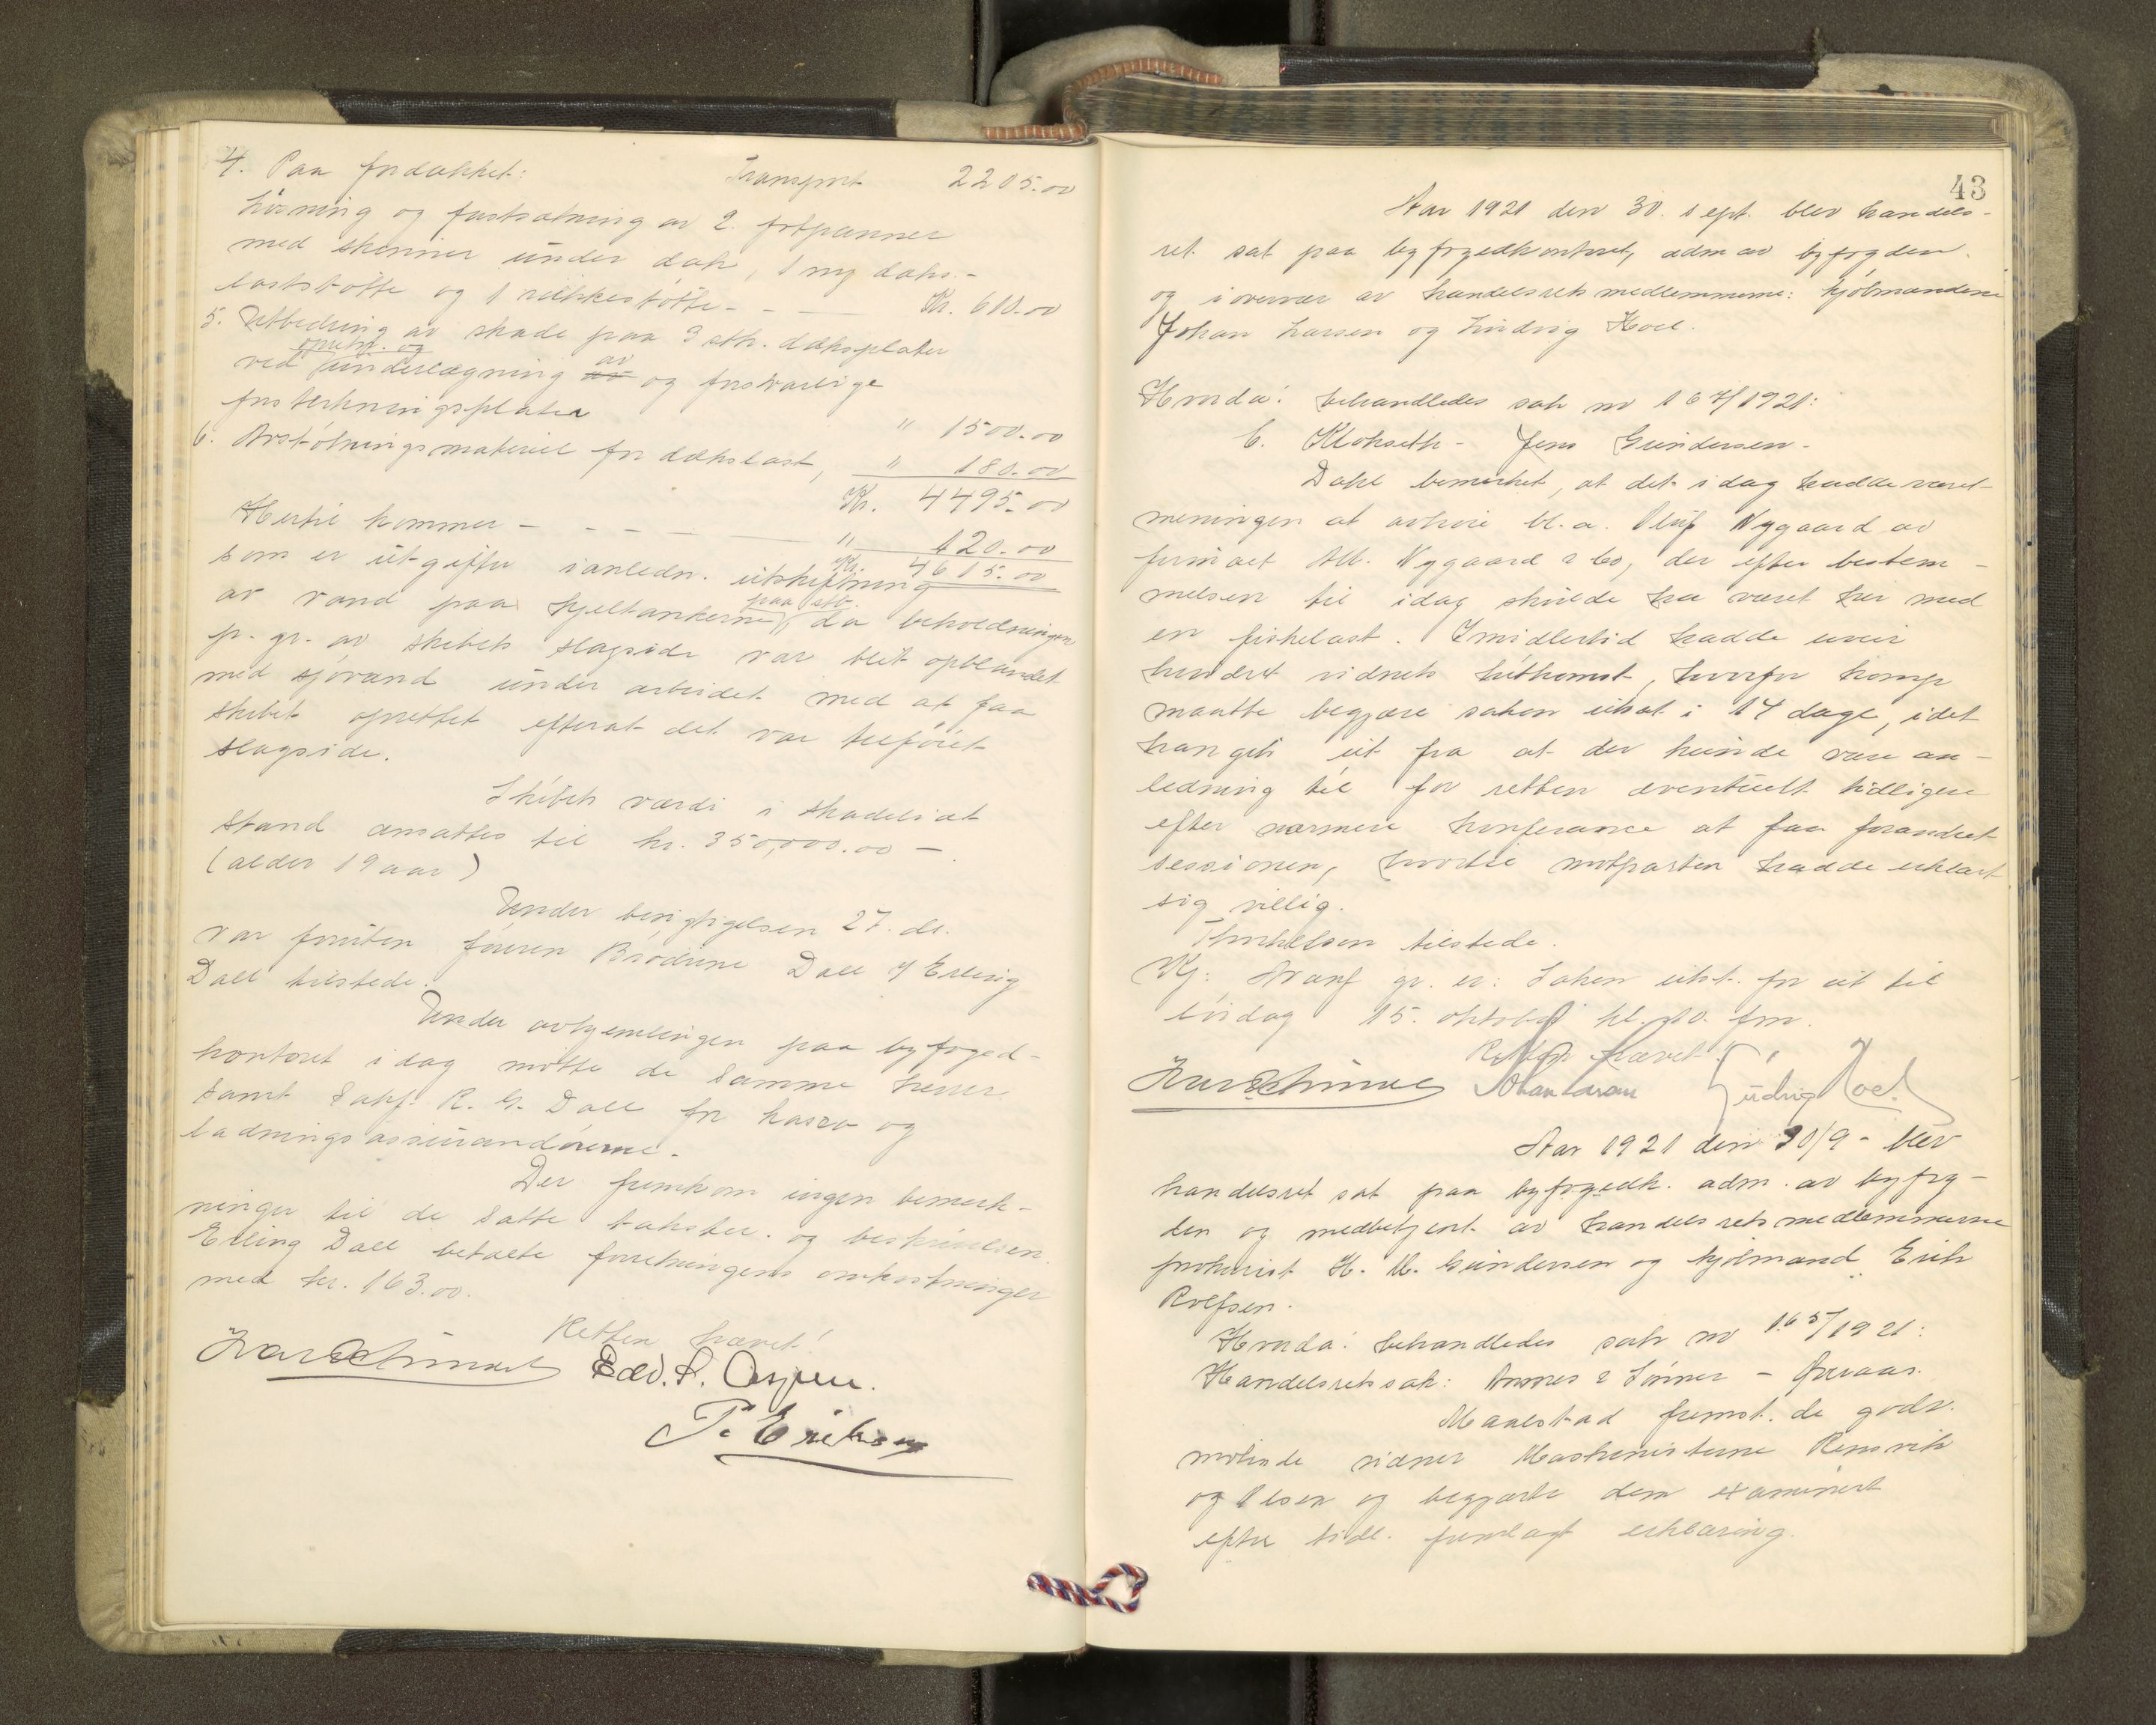 4. Paa fordækket: Transport 2205.00
høvning og fastsætning av 2. fotspanner
med skinner under dæk, 1 ny dæks-
laststøtte og 1 rækkestøtte - - — Kr. 610.00
5. Utbedring av skade paa 3 stk. dæksplater
opretn. og
ved underlægning av av og forsvarlige
forsterkningsplater " 1500.00
6. Avstøtningsmateriel for dækslast, " 180.00
Kr. 4495.00
Hertil kommer - - - — " 120.00
Kr. 4615.00
som er utgifter ianledn. utskiftning
av vand paa kjeltankerne paa stb. da beholdningen
p. gr. av skibets slagside var blit opblandet
med sjøvand under arbeidet med at faa
skibet oprettet efterat det var tilføiet
slagside.
Skibets værdi i skadesløs
stand ansattes til kr. 350,000.00 -
(alder 19 aar)
Under besigtigelsen 27. ds.
var foruten føreren Brødrene Dall v/ Erling
Dall tilstede.
Under avhjemlingen paa byfoged-
kontoret idag møtte de samme herrer
samt Sakf. R. G. Dall for kasco og
ladningsassurandørerne.
Der fremkom ingen bemerk-
ninger til de satte takster. og beskrivelsen.
Erling Dall betalte forretningens omkostninger
med kr. 163.00.
Retten hævet!
Edv. P. Aspen.
P. Eriksen
43
Aar 1921 den 30. sept. blev handels-
ret sat paa byfogedkontoret, adm av byfogden
og i overvær av handelsretsmedlemmerne: kjøbmændene
Johan Larsen og Ludvig Hoel.
Hvorda: behandledes sak no 167/1921:
C. Klokseth - Jens Gundersen -
Dahl bemerket, at det idag hadde været
meningen at avhøre bl. a. Oluf Nygaard av
firmaet Alb. Nygaard & Co, der efter bestem-
melsen til idag skulde ha været her med
en fiskelast. Imidlertid hadde uveir
hindret vidnets hitkomst, hvorfor komp
maatte begjære saken utsat i 14 dage, idet
han gik ut fra at der kunde være an-
ledning til for retten eventuelt tidligere
efter nærmere konferance at faa forandret
sessionen, hvortil motparten hadde erklært
sig villig.
Thorkelsen tilstede.
Kj: Avansf gr. er: Saken utst. for ut til
lørdag 15. oktober kl. 10. fm.
Retten hævet!
Johan Larsen Ludvig Hoel
Aar 1921 den 30/9 - blev
handelsret sat paa byfogedk. adm. av byfog-
den og medbetjent av handelsretsmedlemmerne
prokurist H. M. Gundersen og kjøbmand Erik
Rolfsen.
Hvorda: behandledes sak no 165/1921:
Handelsretssak: & Sønner -
Maalestad fremst. de godv.
møtende vidner Maskinisterne Rensvik
og Olsen og begjærte dem examinert
efter tidl. fremlagt erklæring.